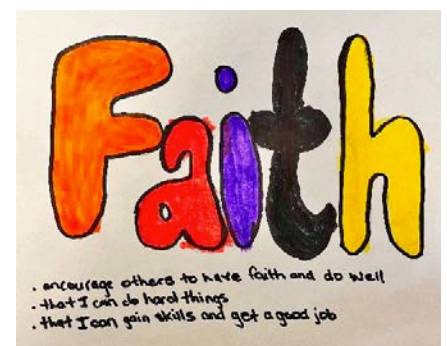 Faith
. encourage others to have faith and do well
. that I can do hard things
. that I can gain skills and get a good job